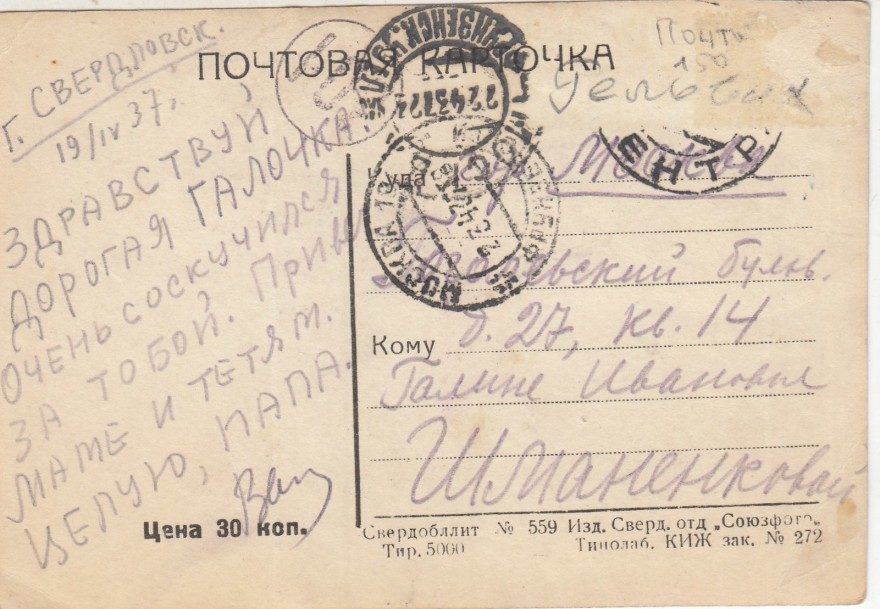 ПОЧТОВАЯ КАРТОЧКА
Почты
150
Г. СВЕРДЛОВСК.
19/IV 37.
ЗДРАВСТВУЙ
ДОРОГАЯ ГАЛОЧКА.
ОЧЕНЬ СОСКУЧИЛСЯ
ЗА ТОБОЙ. ПРИВЕТ
МАМЕ И ТЕТЯМ.
ЦЕЛУЮ, ПАПА.
Куда
Москва
бульв.
д. 27, кв. 14
Кому
Галине Ивановне
Шманенковой
МОСКВА 19
ЕНТР
Цена 30 коп.
Свердобллит № 559 Изд. Сверд. отд „Союзфото„
Тир. 5000 Типолаб. КИЖ зак. № 272